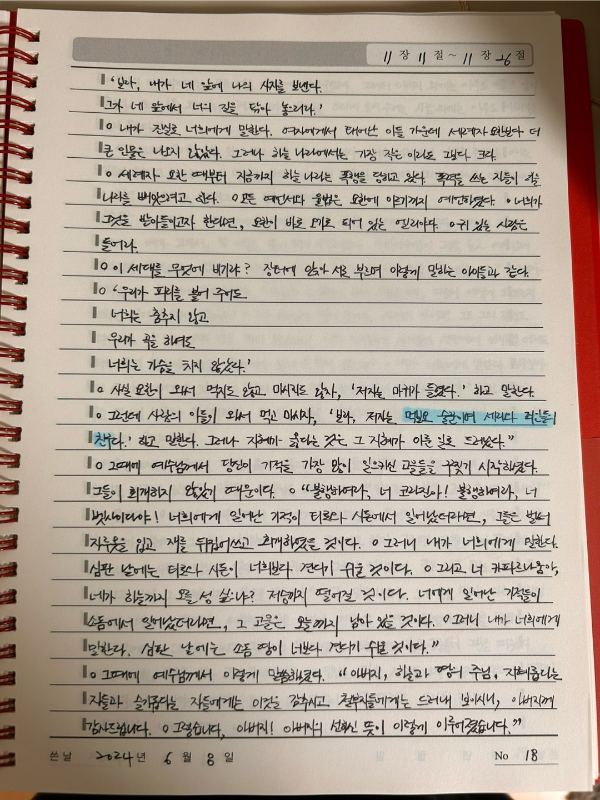 11장 11절~11장 26절
'보라, 내가 네 앞에 나의 사자를 보낸다.
그가 네 앞에서 너의 길을 닦아 놓으리라.'
○ 내가 진실로 너희에게 말한다. 여자에게서 태어난 이들 가운데 세례자 요한보다 더
큰 인물은 나오지 않았다. 그러나 하늘 나라에서는 가장 작은 이라도 그보다 크다.
○ 세례자 요한 때부터 지금까지 하늘 나라는 폭행을 당하고 있다. 폭력을 쓰는 자들이 하늘
나라를 빼앗으려고 한다. ○ 모든 예언서와 율법은 요한에 이르기까지 예언하였다. ○ 너희가
그것을 받아들이고자 한다면, 요한이 바로 오기로 되어 있는 엘리야다. ○ 귀 있는 사람은
들어라.
○ 이 세대를 무엇에 비기랴? 장터에 앉아 서로 부르며 이렇게 말하는 아이들과 같다.
○ '우리가 피리를 불어 주어도
너희는 춤추지 않고
우리가 곡을 하여도
너희는 가슴을 치지 않았다.'
○ 사실 요한이 와서 먹지도 않고 마시지도 않자, '저자는 마귀가 들렸다.' 하고 말한다.
○ 그런데 사람의 아들이 와서 먹고 마시자, '보라, 저자는 먹보요 술꾼이며 세리와 죄인들의
친구다.' 하고 말한다. 그러나 지혜가 옳다는 것은 그 지혜가 이룬 일로 드러났다."
○ 그때에 예수님께서 당신이 기적을 가장 많이 일으키신 고을들을 꾸짖기 시작하셨다.
그들이 회개하지 않았기 때문이다. ○ "불행하여라, 너 코라진아! 불행하여라, 너
벳사이다야! 너희에게 일어난 기적이 티로와 시돈에서 일어났더라면, 그들은 벌써
자루옷을 입고 재를 뒤집어쓰고 회개하였을 것이다. ○ 그러니 내가 너희에게 말한다.
심판 날에는 티로와 시돈이 너희보다 견디기 쉬울 것이다. ○ 그리고 너 카파르나움아,
네가 하늘까지 오를 성 싶으냐? 저승까지 떨어질 것이다. 너에게 일어난 기적들이
소돔에서 일어났더라면, 그 고을은 오늘까지 남아 있을 것이다. ○ 그러니 내가 너희에게
말한다. 심판 날에는 소돔 땅이 너보다 견디기 쉬울 것이다."
○ 그때에 예수님께서 이렇게 말씀하셨다. "아버지, 하늘과 땅의 주님, 지혜롭다는
자들과 슬기롭다는 자들에게는 이것을 감추시고 철부지들에게는 드러내 보이시니, 아버지께
감사드립니다. ○ 그렇습니다, 아버지! 아버지의 선하신 뜻이 이렇게 이루어졌습니다."
쓴날 2024년 6월 8일 No 18